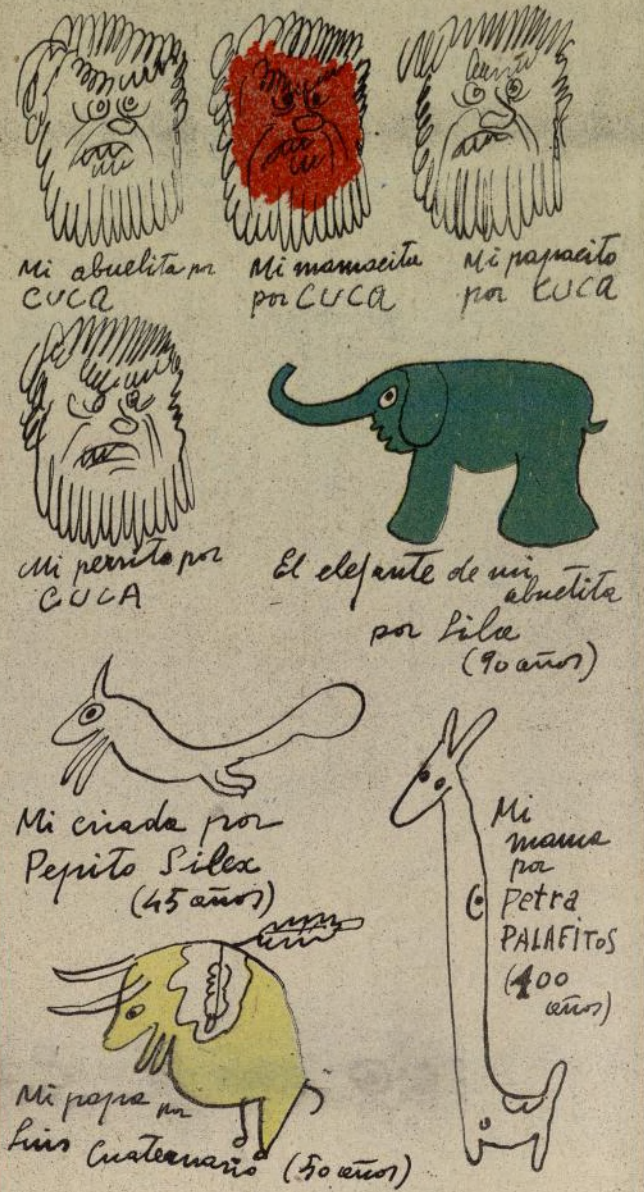 Mi abuelita por
CUCA
Mi mamacita
por CUCA
Mi papacito
por CUCA
Mi perrito por
CUCA
El elefante de mi
abuelita
por Lila
(90 años)
Mi criada por
Pepito Silex
(45 años)
Mi
mama
por
Petra
PALAFITOS
(400
años)
Mi papa por
Luis Cuaternario (50 años)